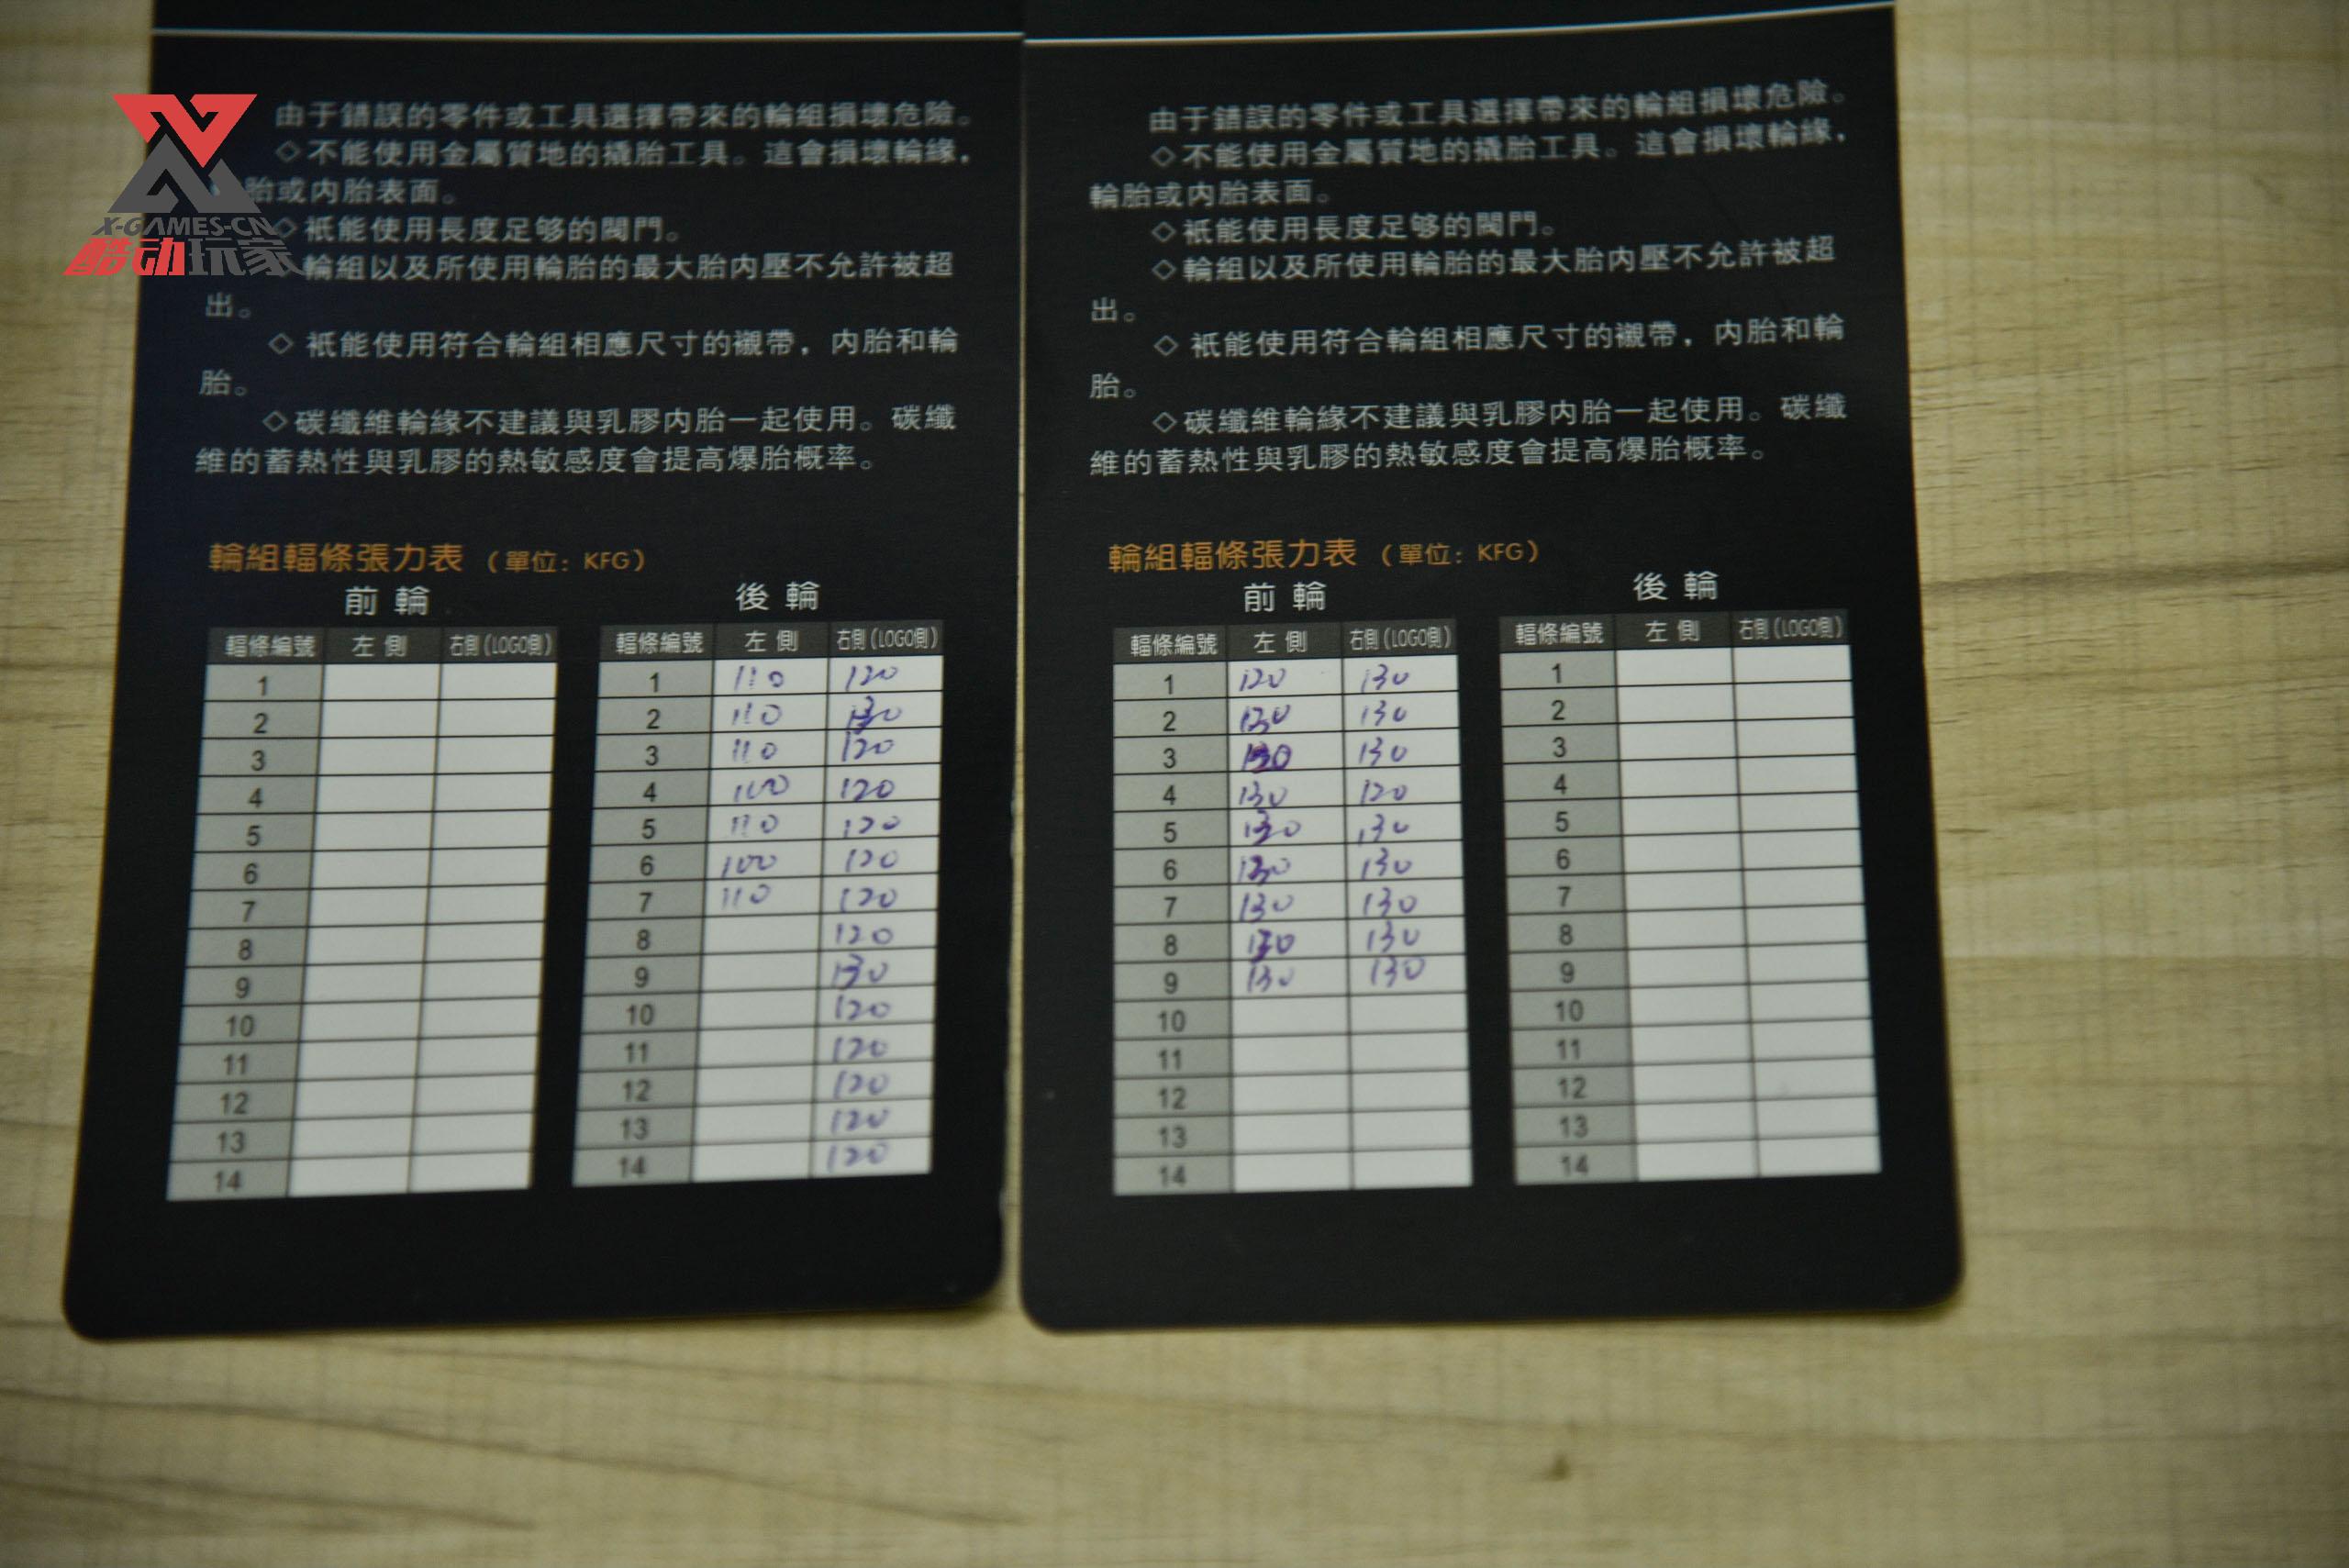 X-GAMES-CN
酷动玩家
由于錯誤的零件或工具選擇帶來的輪組損壞危險。
◇不能使用金屬質地的撬胎工具。這會損壞輪緣，
胎或内胎表面。
◇衹能使用長度足够的閥門。
輪組以及所使用輪胎的最大胎内壓不允許被超
出。
◇衹能使用符合輪組相應尺寸的襯帶，内胎和輪
胎。
◇碳纖維輪緣不建議與乳膠内胎一起使用。碳纖
維的蓄熱性與乳膠的熱敏感度會提高爆胎概率。
輪組輻條張力表（單位：KFG）
前輪
輻條編號 左側 右側(LOGO側)
1
2
3
4
5
6
7
8
9
10
11
12
13
14
後輪
輻條編號 左側 右側(LOGO側)
1 110 120
2 110 130
3 110 120
4 100 120
5 110 120
6 100 120
7 110 120
8 120
9 130
10 120
11 120
12 120
13 120
14 120
由于錯誤的零件或工具選擇帶來的輪組損壞危險。
◇不能使用金屬質地的撬胎工具。這會損壞輪緣，
輪胎或内胎表面。
◇衹能使用長度足够的閥門。
◇輪組以及所使用輪胎的最大胎内壓不允許被超
出。
◇衹能使用符合輪組相應尺寸的襯帶，内胎和輪
胎。
◇碳纖維輪緣不建議與乳膠内胎一起使用。碳纖
維的蓄熱性與乳膠的熱敏感度會提高爆胎概率。
輪組輻條張力表（單位：KFG）
前輪
輻條編號 左側 右側(LOGO側)
1 120 130
2 130 130
3 130 130
4 130 120
5 130 130
6 130 130
7 130 130
8 130 130
9 130 130
10
11
12
13
14
後輪
輻條編號 左側 右側(LOGO側)
1
2
3
4
5
6
7
8
9
10
11
12
13
14